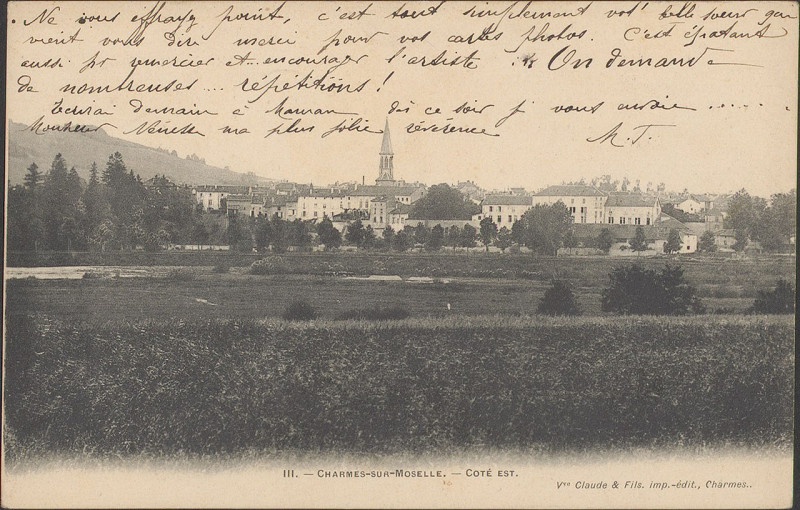 Ne vous effrayez point, c'est tout simplement vot' belle soeur qui
vient vous dire merci pour vos cartes photos. C'est épatant
aussi pr remercier et encourager l'artiste : "On demande
de nombreuses ... répétitions!
Ecrirai demain à Maman dès ce soir j vous envoie .....
ma plus jolie révérence
M. T.
III. — CHARMES-SUR-MOSELLE. — COTÉ EST.
Vve Claude & Fils. imp.-édit., Charmes..